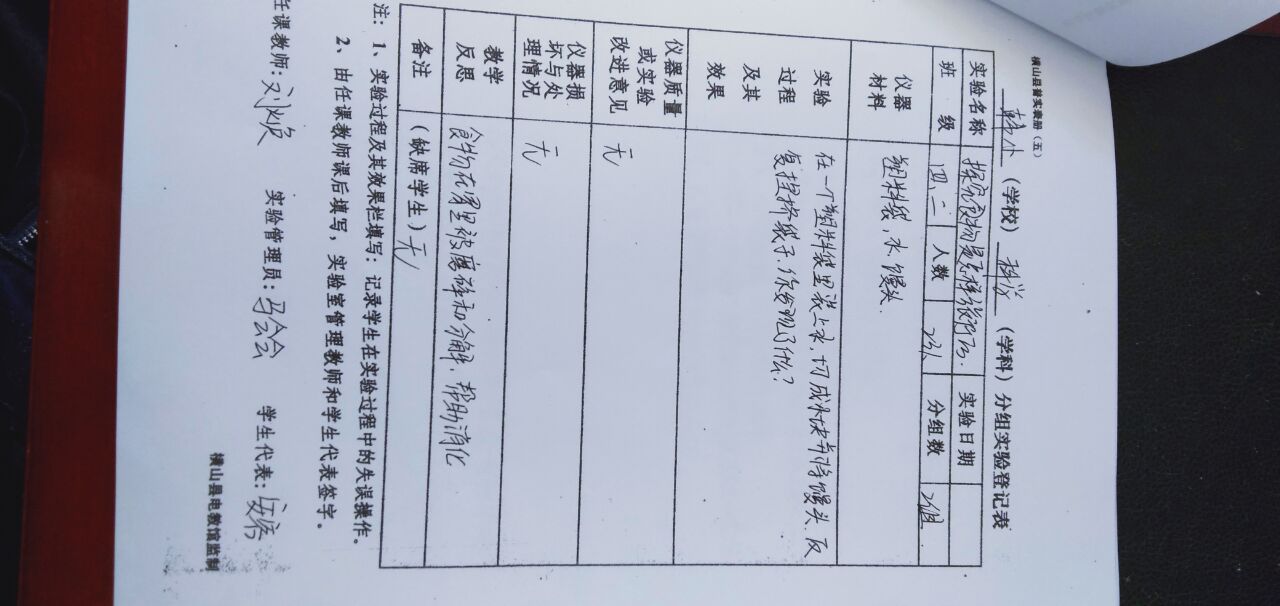 横山县普实表册（五）
（学校）科学（学科）分组实验登记表
实验名称 探究食物是怎样 实验日期
班级 四、二 人数 分组数 2组
仪器材料 塑料袋，水，馒头.
实验过程及其效果 在一个塑料袋里装上水，切成小块 馒头.反
复捏挤袋子，你发现了什么？
仪器质量或实验改进意见 无
仪器损坏与处理情况 无
教学反思 食物在胃里被磨碎和分解，帮助消化
备注 （缺席学生）无
注：1、实验过程及其效果栏填写：记录学生在实验过程中的失误操作。
2、由任课教师课后填写，实验室管理教师和学生代表签字。
任课教师：刘 实验管理员：马会会 学生代表：
横山县电教馆监制